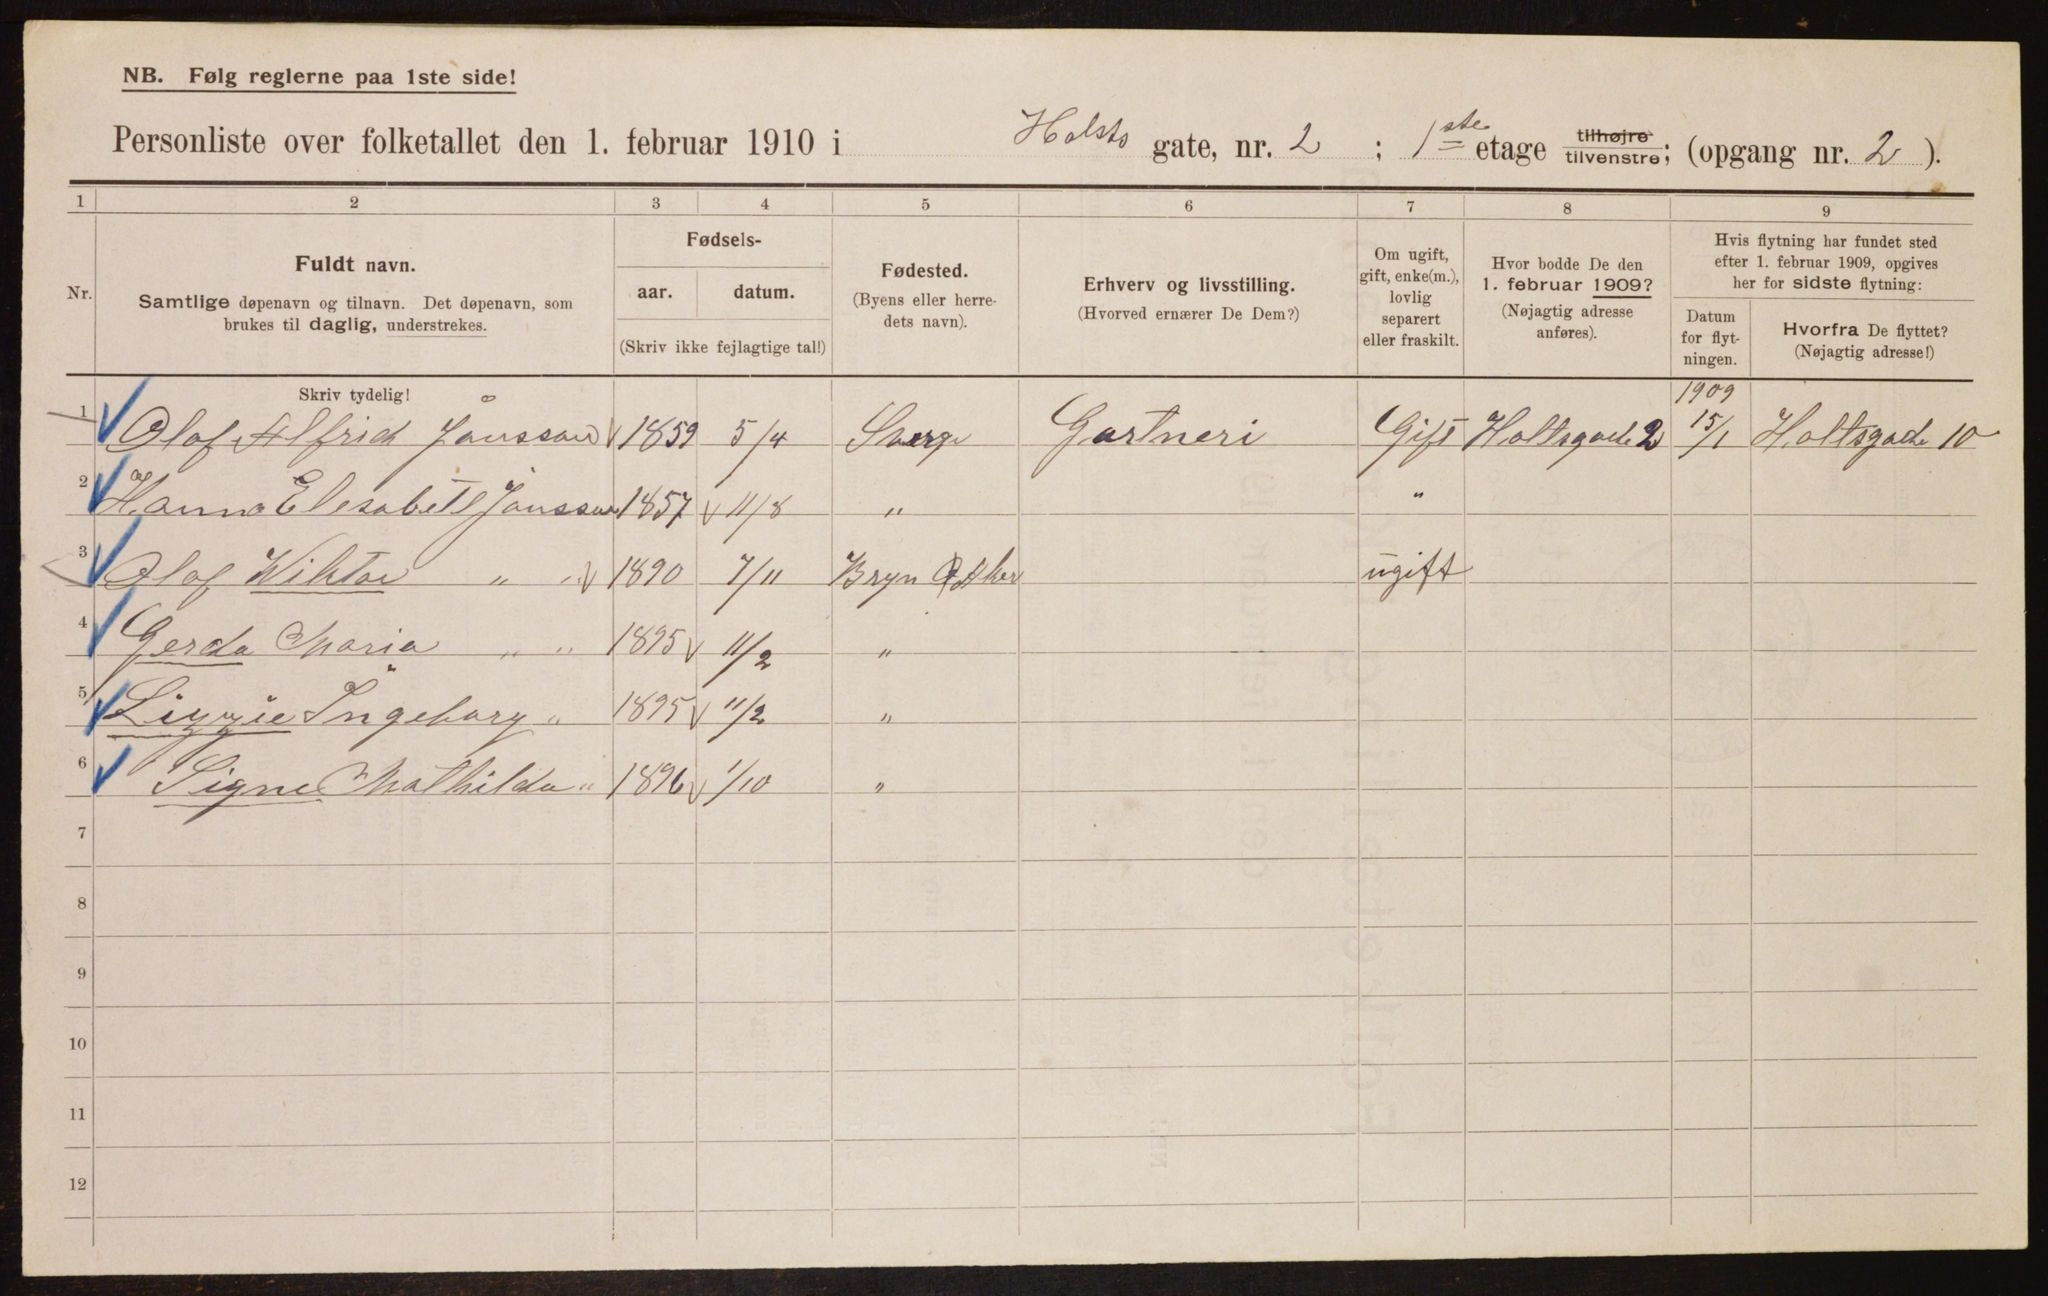 NB. Følg reglerne paa 1ste side!
Personliste over folketallet den 1. februar 1910 i Holsts gate, nr. 2 ; 1ste etage tilhøjre tilvenstre; (opgang nr. 2 ).
1 2 3 4 5 6 7 8 9
Nr.
Fuldt navn.
Samtlige døpenavn og tilnavn. Det døpenavn, som
brukes til daglig, understrekes.
Skriv tydelig!
Fødsels-
aar. datum.
(Skriv ikke fejlagtige tal!)
Fødested.
(Byens eller herre-
dets navn).
Erhverv og livsstilling.
(Hvorved ernærer De Dem?)
Om ugift,
gift, enke(m.),
lovlig
separert
eller fraskilt.
Hvor bodde De den
1. februar 1909?
(Nøjagtig adresse
anføres).
Hvis flytning har fundet sted
efter 1. februar 1909, opgives
her for sidste flytning:
Datum
for flyt-
ningen.
Hvorfra De flyttet?
(Nøjagtig adresse!)
1 Olof Alfrid Jånsson 1859 5/4 Sverge Gartneri Gift Holtsgade 2 1909 15/1 Holtsgade 10
2 Hanna Elesabett Jonsson 1857 11/8 " "
3 Olof Wiktor " " 1890 7/11 Bryn Aker ugift
4 Gerda Maria " " 1895 11/2 "
5 Lizzie Ingeborg " 1895 11/2 "
6 Signe Mathilda " 1896 1/10 "
7
8
9
10
11
12